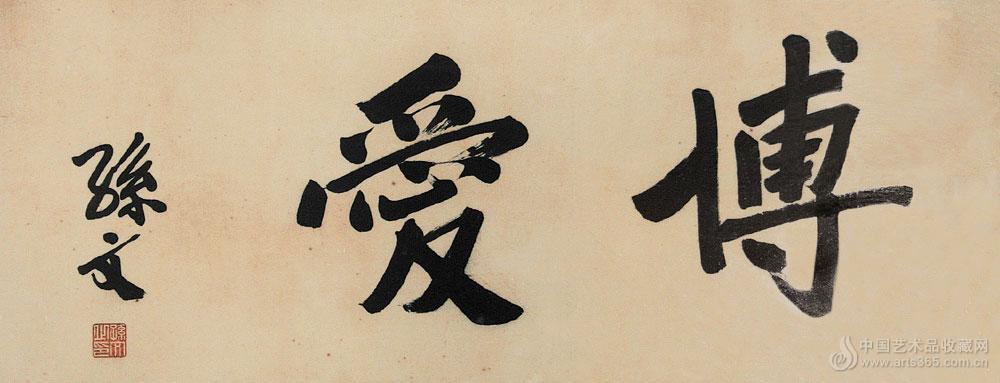 博愛
孫文
孫文之印
中国艺术品收藏网
www.arts365.com.cn